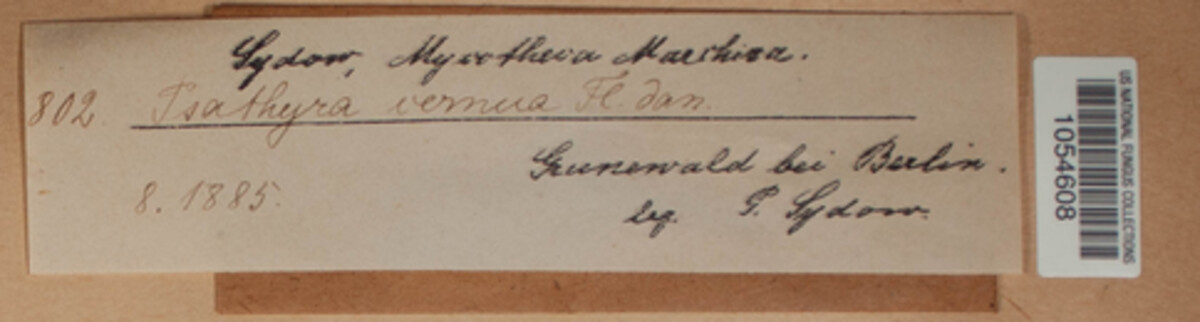 Sydow, Mycotheca Marchica.
802. Psathyra vernua Fl. dan.
Grunewald bei Berlin.
8. 1885.
leg. P. Sydow.
US NATIONAL FUNGUS COLLECTIONS
1054608